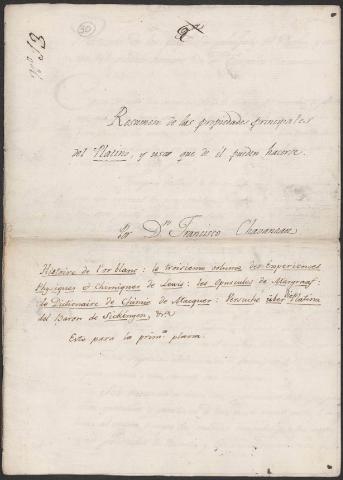 30
Resumen de las propiedades principales
del Platino, y usos que de él pueden hacerse.
Por Dn Francisco Chavaneau
Histoire de l'or blanc: le troisieme volume des Experiences
Physiques & Chemiques de Lewis: les Opuscules de Margraaf:
le Dictionaire de Chimie de Macquer: Versuche über Platina
del Baron de Sickengen, &ra
Esto para la prima. plana.